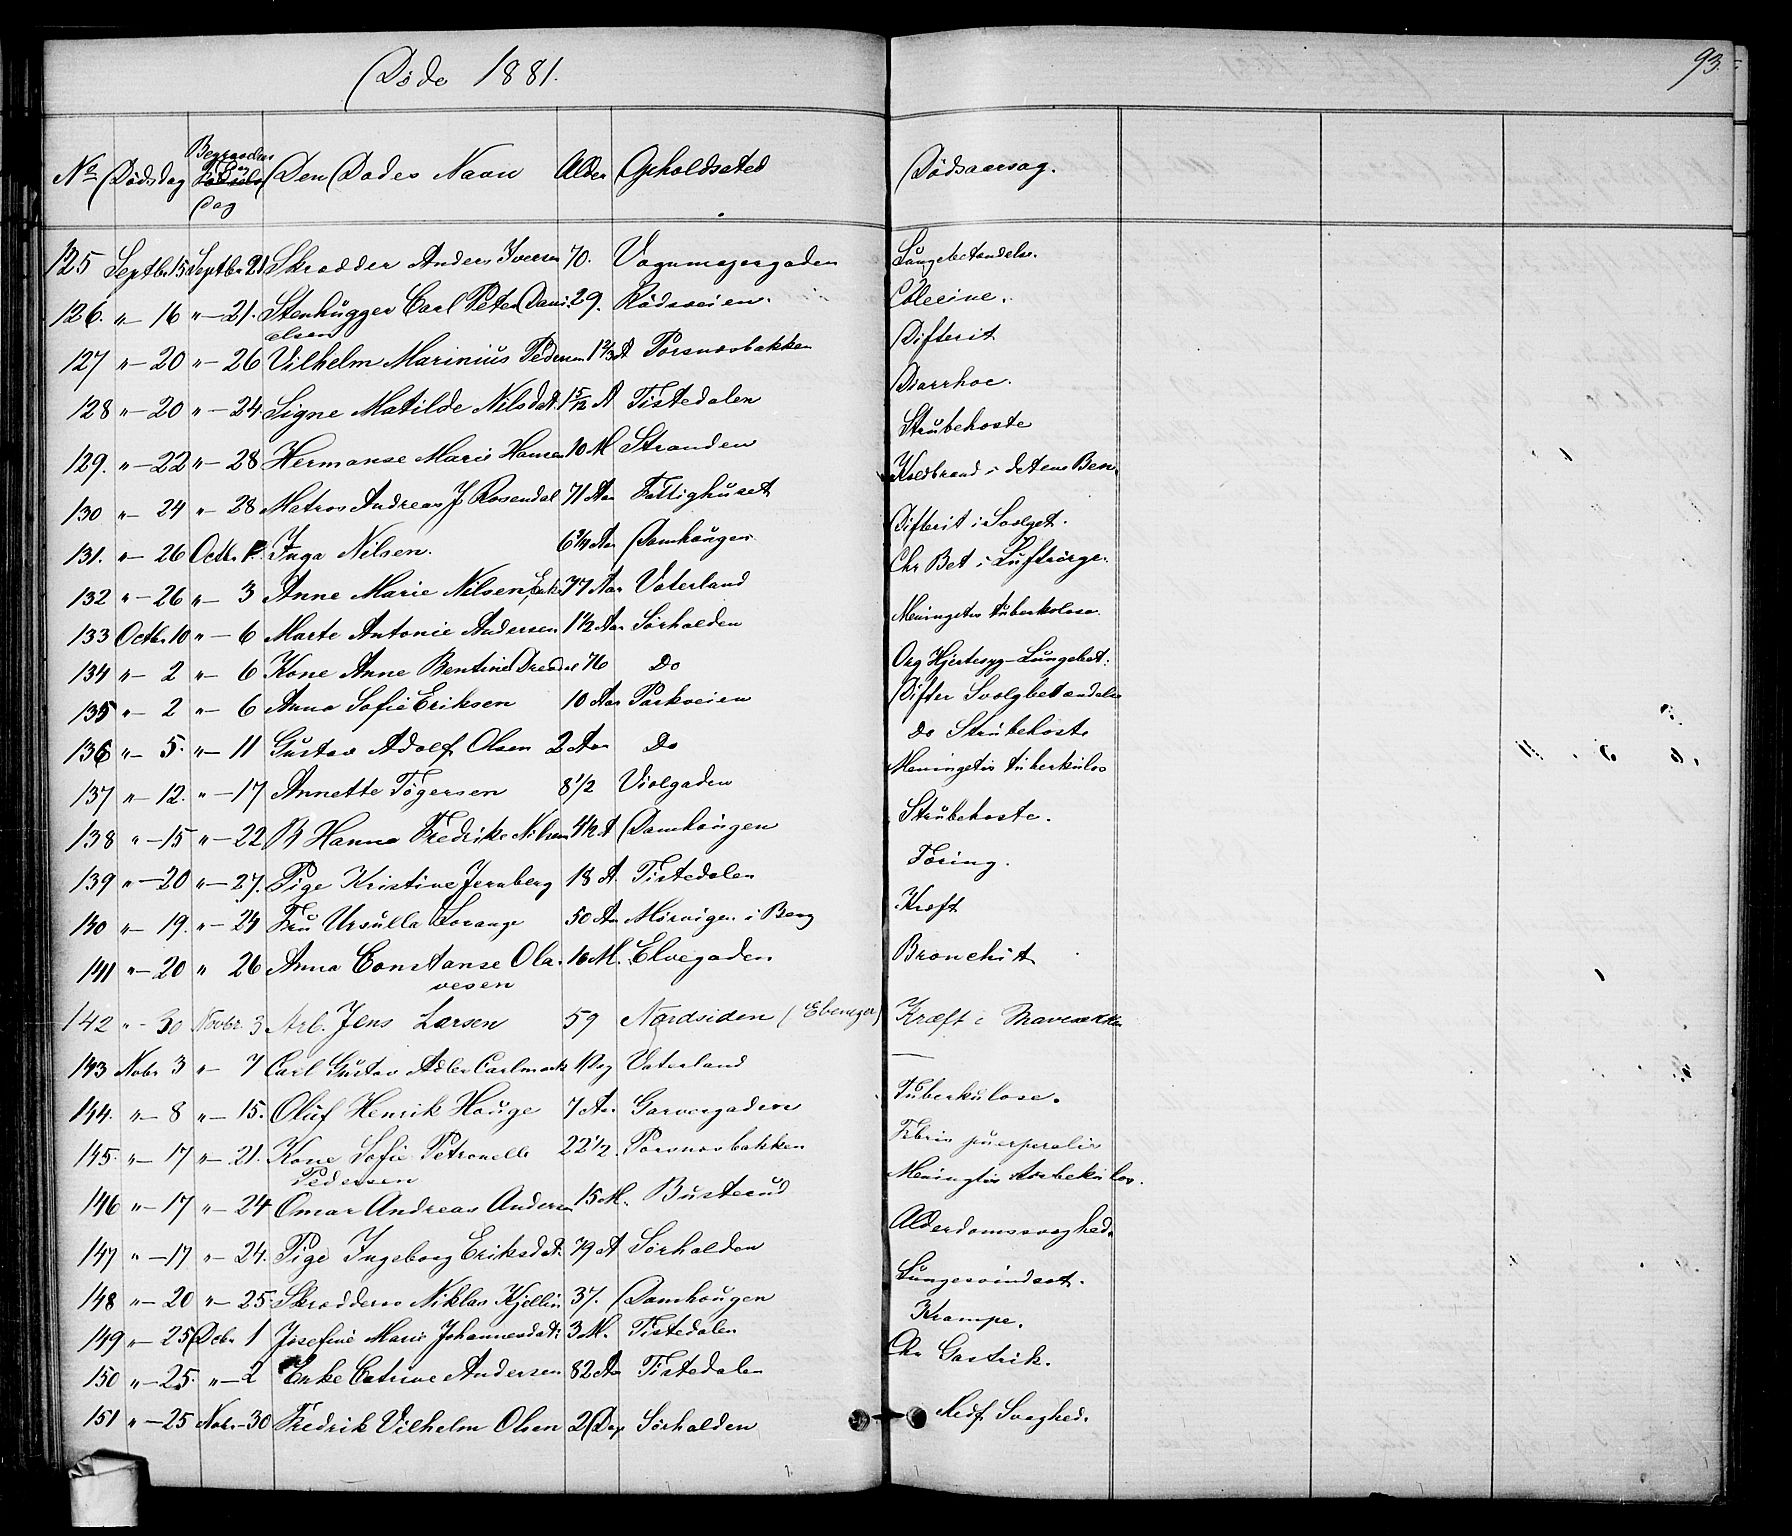 Døde 1881.
93.
No Dødsdag Begravelses Dag Den Dødes Navn Alder Opholdssted Dødsaarsag.
125 Septbr. 15 Septbr. 21 Skrædder Anders Iversen 70. Vognmagergaden Lungebetændelse.
126. " — 16 " — 21. Stenhugger Carl Peter Dani 29. Rødsveien. Colerine.
elsen
127 " — 20 " — 26 Vilhelm Marinius Pedersen 1 2/3 A Porsnæsbakken Difterit
128 " — 20 " — 24. Signe Matilde Nilsdat. 1 5/12 A Tistedalen Diarrhoe.
129. " — 22 " — 28 Hermanse Marie Hansen 10 M Stranden Strubehoste
130 " — 24 " — 28 Matros Andreas J Rosendal 71 Aar Fattighuset Koldbrand i det ene Ben.
131. " — 26 Octb. Inga Nilsen. 6 3/4 Aar Damhaugen Difterit i Svælget.
132 " — 26 " — 3 Anne Marie Nilsen, Enke 77 Aar Vaterland Chr Bet i Luftrörge.
133 Octb. 10 " — 6 Marte Antonie Andersen 1 1/2 Aar Sørhalden Meningetis tuberkolose.
134 " — 2 " — 6 Kone Anne Bentine 76 Do Org Hjertesyg — Lungebet.
135 " — 2 " — 6 Anna Sofie Eriksen 10 Aar Parkveien Difter Svælgbetændelse
136 " — 5. " — 11 Gustav Adolf Olsen 2 Aar Do do Strubehoste
137 " — 12. " — 17 Annette Tøgersen 8 1/2 Violgaden Meningetis tuberkulos
138 " — 15 " — 22 B Hanna Fredrike Nilsen 4 1/2 A Damhaugen Strubehoste.
139 " — 20 " — 27. Pige Kristine Jernberg 18 A. Tistedalen Tæring.
140 " — 19. " — 24 Fru Ursulla Lorange 50 Aar i Berg Kræft
141 " — 20 " 26 Anna Constanse Ola 16 M. Elvegaden Bronchit
vesen
142 " — 30 Novbr. 3 Arb. Jens Larsen 59 Nordsiden (Ebenezer) Kræft i Mavesækken
143 Nobr 3 " — 7 Carl Gustav Adler Carlmark 1 Dag Vaterland —
144. " — 8 " — 15. Oluf Henrik Hauge 7 Aar Garvergaden Tuberkulose.
145. " — 17 " — 21. Kone Sofie Petronelle 22 1/2 Porsnæsbakken Febris puerperalis
Pedersen
146 " — 17 " — 24 Omar Andreas Andersen 15 M. Busterud Meningtis tuberkulos.
147 " — 17 " — 24. Pige Ingeborg Eriksdat. 79 A Sørhalden Alderdomssvaghed.
148 " — 20 " — 25. Skrædders Niklas Kjellin 37. Damhaugen Lungesvindsot.
149 " — 25 Decbr 1 Josefine Marie Johannesdat. 3 M. Tistedalen Krampe.
150 " — 25. " — 2 Enke Catrine Andersen 82 Aar Tistedalen Chr Gastrik.
151 " — 25 Nobr — 30 Fredrik Vilhelm Olsen 2 Dag Sørhalden Medf Svaghed.